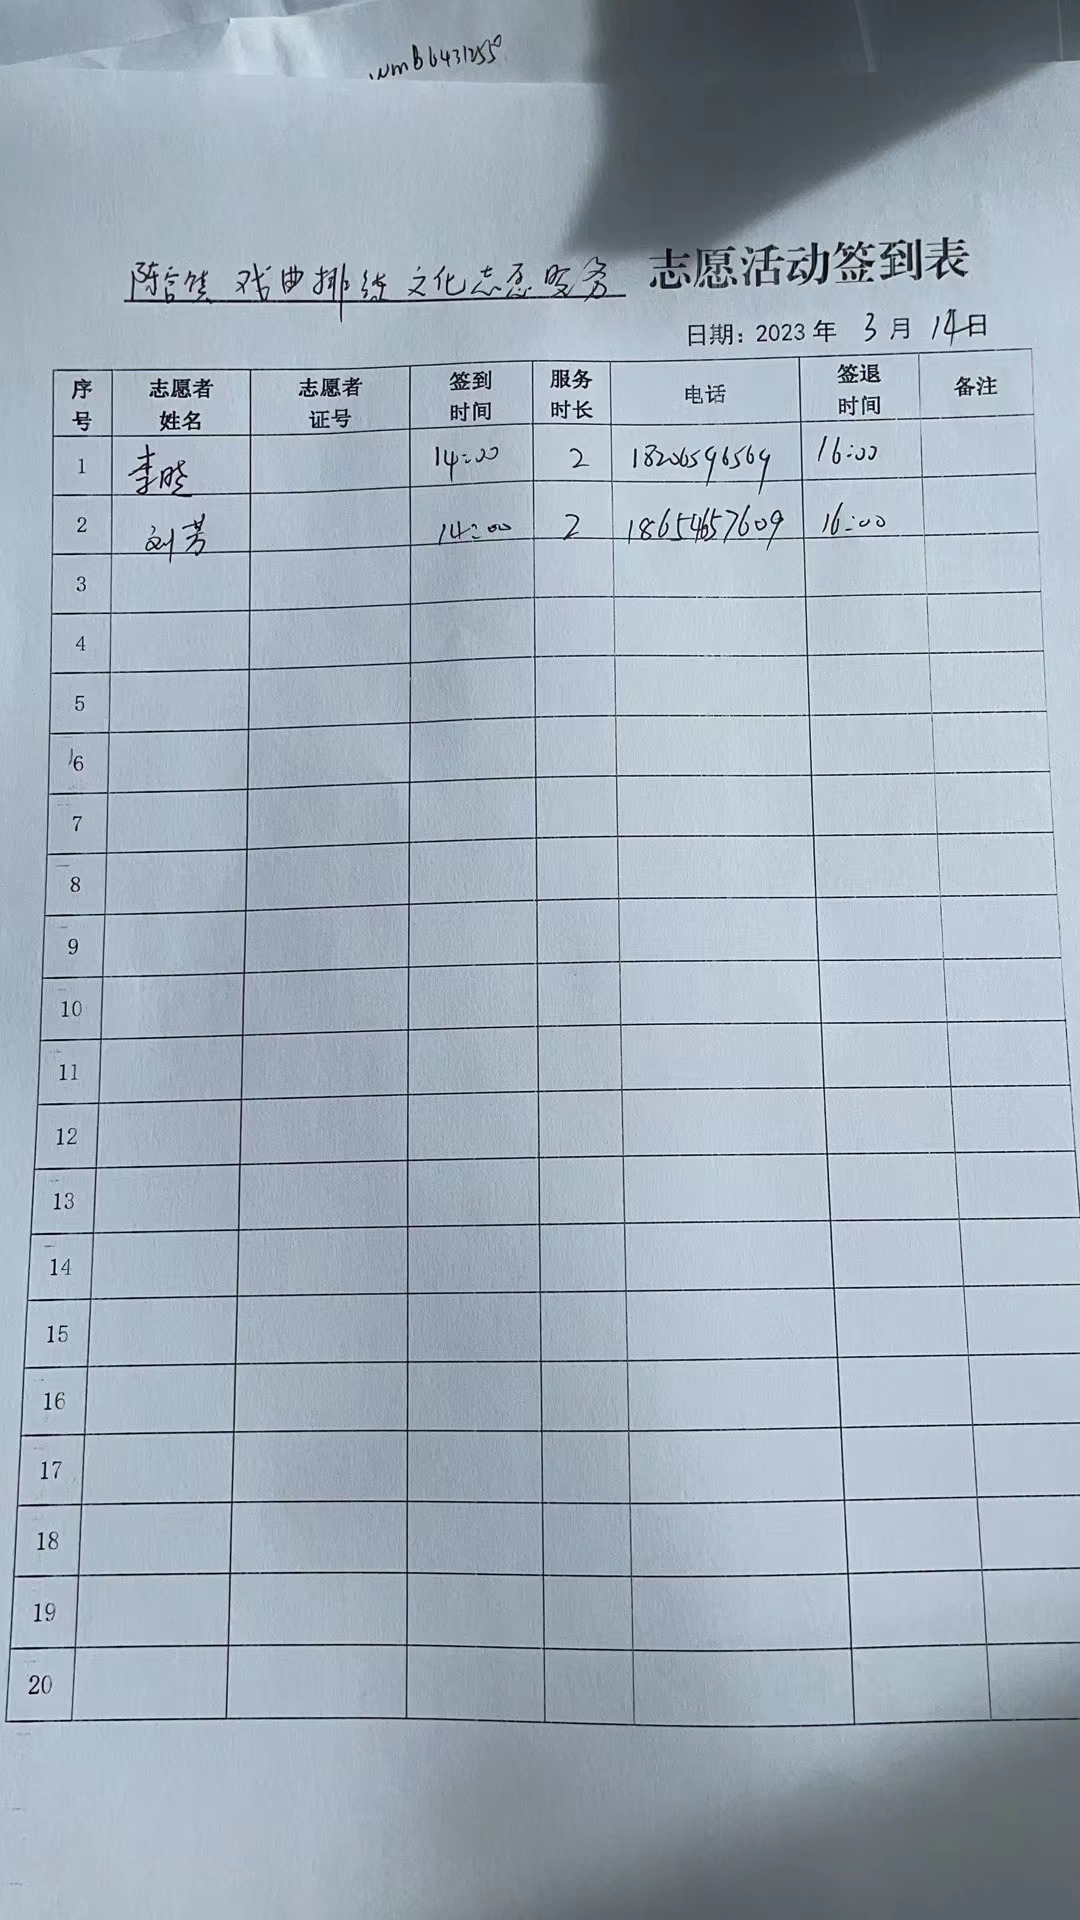 wmb6431255
戏曲排练文化志愿服务 志愿活动签到表
日期：2023 年 3 月 14日
序号 志愿者姓名 志愿者证号 签到时间 服务时长 电话 签退时间 备注
1 李晓 14:00 2 18206596569 16:00
2 刘芳 14:00 2 18654657609 16:00
3
4
5
6
7
8
9
10
11
12
13
14
15
16
17
18
19
20